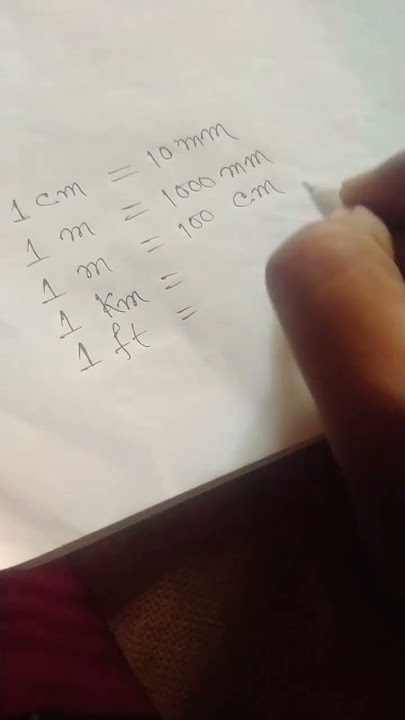 1 cm = 10 mm
1 m = 1000 mm
1 m = 100 cm
1 Km =
1 ft =